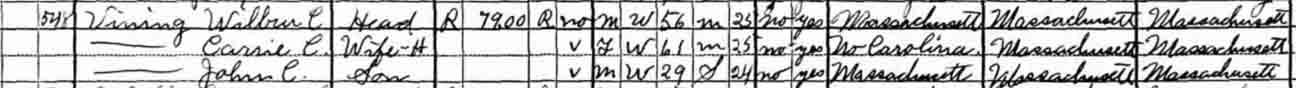 548 Vining Wilbur C. Head R 79.00 R no m W 56 m 25 no yes Massachusett Massachusett Massachusett
Carrie C. Wife-H v F W 61 m 25 no yes No Carolina Massachusett Massachusett
John C. Son v m W 29 S 24 no yes Massachusett Massachusett Massachusett